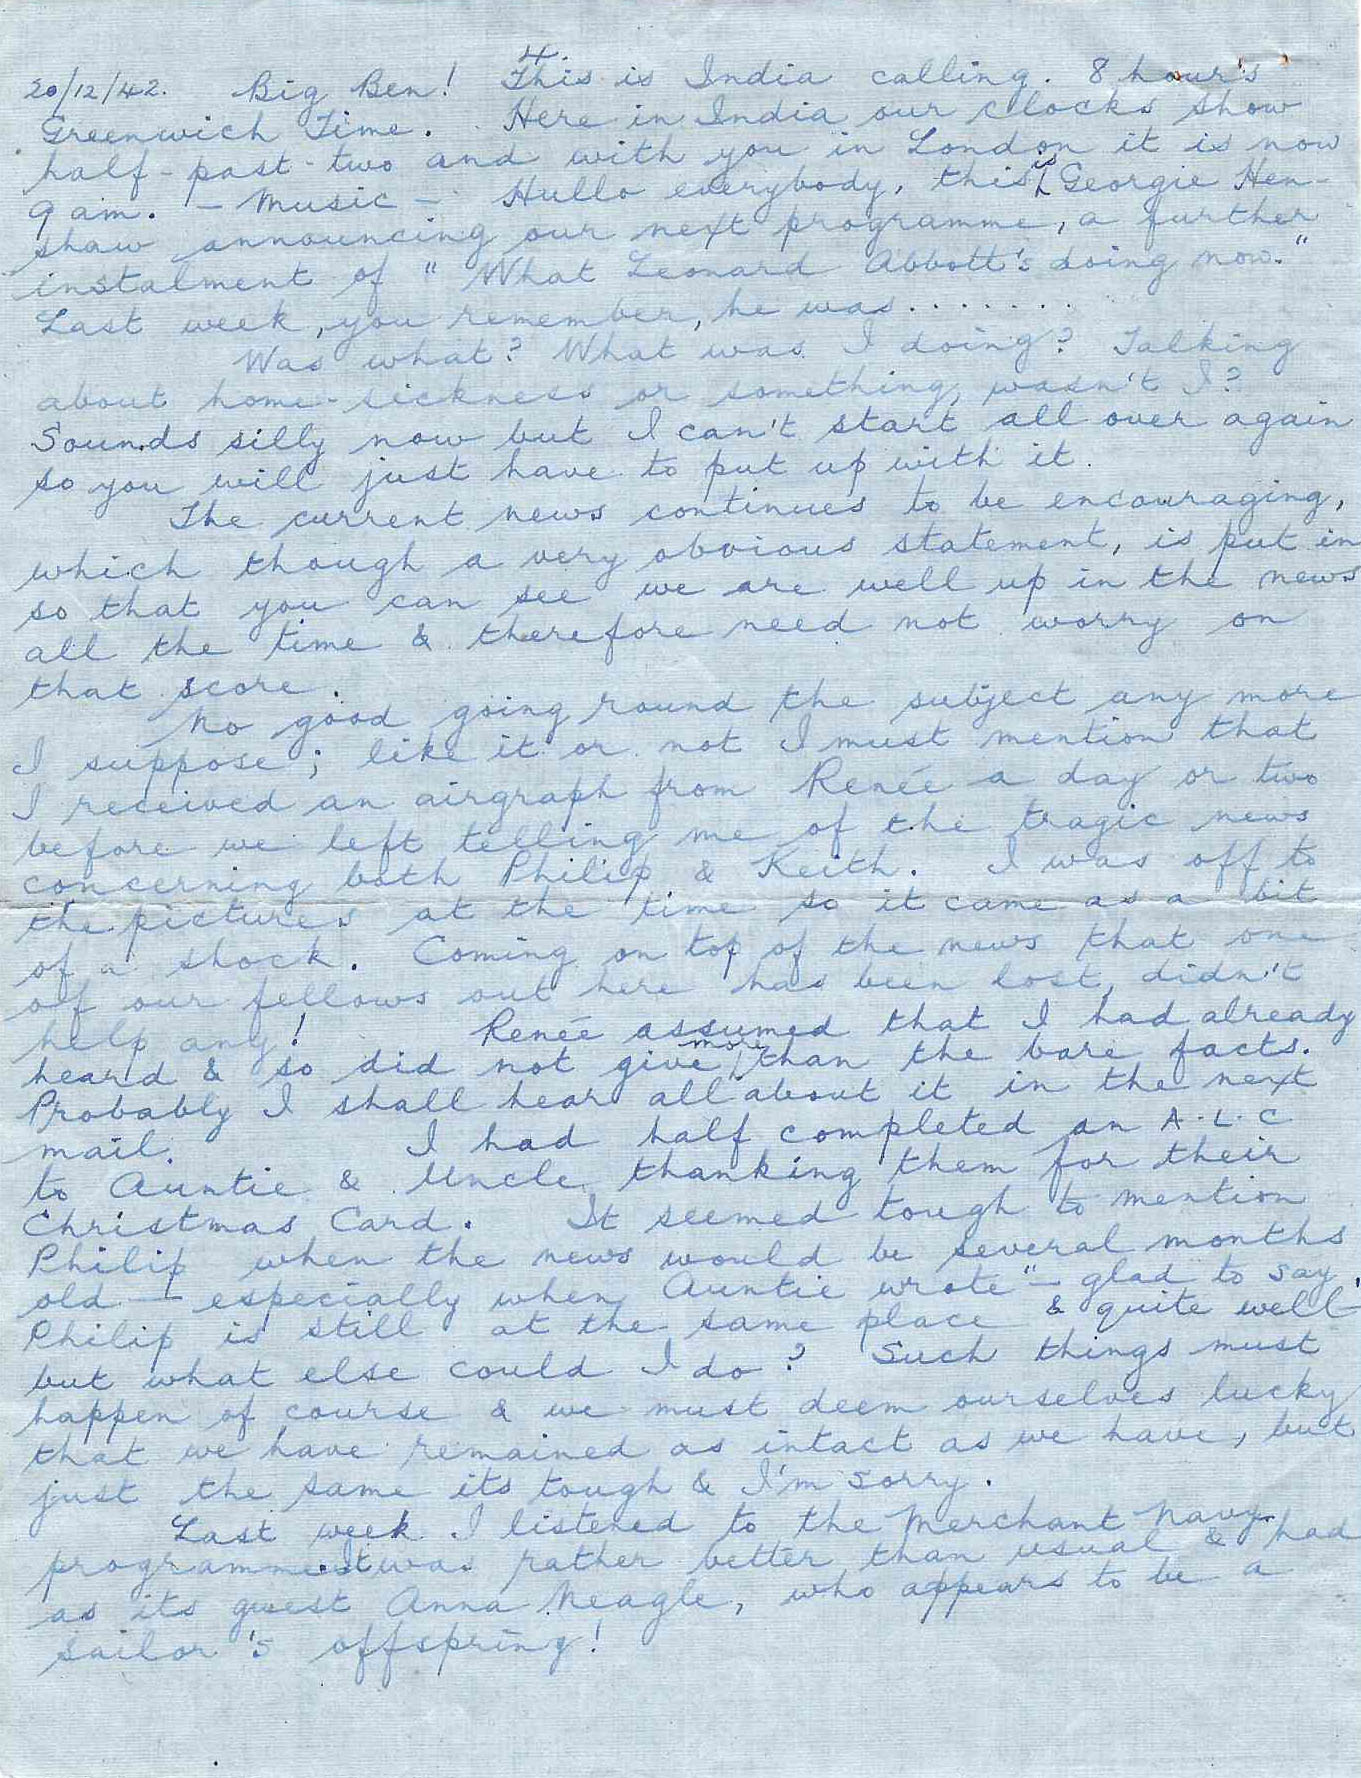 4.
20/12/42. Big Ben! This is India calling. 8 hours
Greenwich Time. Here in India our clocks show
half-past-two and with you in London it is now
9 am. - Music - Hullo everybody, this is Georgie Hen-
shaw announcing our next programme, a further
instalment of "What Leonard Abbott's doing now."
Last week, you remember, he was.......
Was what? What was I doing? Talking
about home-sickness or something, wasn't I?
Sounds silly now but I can't start all over again
so you will just have to put up with it.
The current news continues to be encouraging,
which though a very obvious statement, is put in
so that you can see we are well up in the news
all the time & therefore need not worry on
that score.
No good going round the subject any more
I suppose; like it or not I must mention that
I received an airgraph from Renée a day or two
before we left telling me of the tragic news
concerning both Philip & Keith. I was off to
the pictures at the time so it came as a bit
of a shock. Coming on top of the news that one
of our fellows out here has been lost, didn't
help any! Renée assumed that I had already
heard & so did not give more than the bare facts.
Probably I shall hear all about it in the next
mail. I had half completed an A.L.C
to Auntie & Uncle thanking them for their
Christmas Card. It seemed tough to mention
Philip when the news would be several months
old — especially when Auntie wrote "— glad to say
Philip is still at the same place & quite well"
but what else could I do? Such things must
happen of course & we must deem ourselves lucky
that we have remained as intact as we have, but
just the same its tough & I'm sorry.
Last week I listened to the Merchant Navy
programme. It was rather better than usual & had
as its guest Anna Neagle, who appears to be a
sailor's offspring!